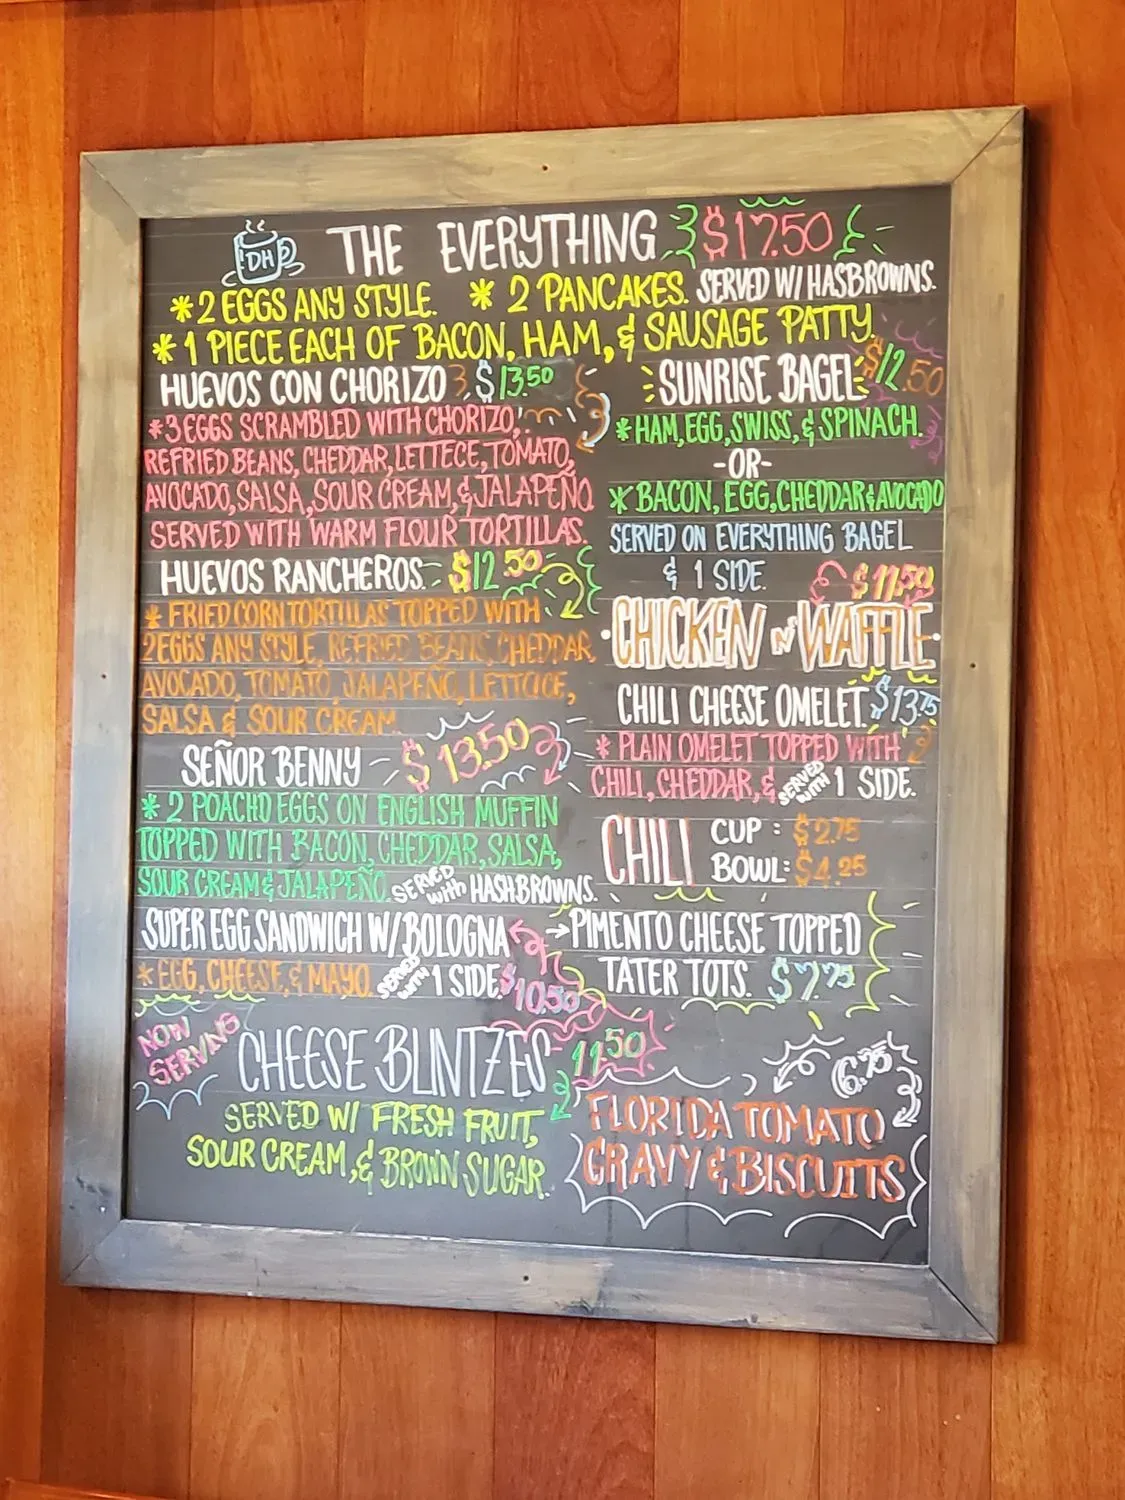 DH
THE EVERYTHING $17.50
* 2 EGGS ANY STYLE. * 2 PANCAKES. SERVED W/ HASBROWNS.
* 1 PIECE EACH OF BACON, HAM, & SAUSAGE PATTY.
HUEVOS CON CHORIZO $13.50
* 3 EGGS SCRAMBLED WITH CHORIZO,
REFRIED BEANS, CHEDDAR, LETTECE, TOMATO,
AVOCADO, SALSA, SOUR CREAM, & JALAPEÑO
SERVED WITH WARM FLOUR TORTILLAS.
HUEVOS RANCHEROS $12.50
* FRIED CORN TORTILLAS TOPPED WITH
2 EGGS ANY STYLE, REFRIED BEANS, CHEDDAR,
AVOCADO, TOMATO, JALAPEÑO, LETTUCE,
SALSA & SOUR CREAM.
SEÑOR BENNY $13.50
* 2 POACHD EGGS ON ENGLISH MUFFIN
TOPPED WITH BACON, CHEDDAR, SALSA,
SOUR CREAM & JALAPEÑO. SERVED with HASHBROWNS.
SUPER EGG SANDWICH W/ BOLOGNA
* EGG, CHEESE, & MAYO. SERVED WITH 1 SIDE. $10.50
SUNRISE BAGEL $12.50
* HAM, EGG, SWISS, & SPINACH.
-OR-
* BACON, EGG, CHEDDAR & AVOCADO
SERVED ON EVERYTHING BAGEL
& 1 SIDE.
$11.50
CHICKEN N' WAFFLE
CHILI CHEESE OMELET $13.75
* PLAIN OMELET TOPPED WITH
CHILI, CHEDDAR, & SERVED WITH 1 SIDE.
CHILI CUP: $2.75
BOWL: $4.25
PIMENTO CHEESE TOPPED
TATER TOTS. $7.75
NOW SERVING
CHEESE BLINTZES 11.50
SERVED W/ FRESH FRUIT,
SOUR CREAM, & BROWN SUGAR.
6.75
FLORIDA TOMATO
GRAVY & BISCUITS